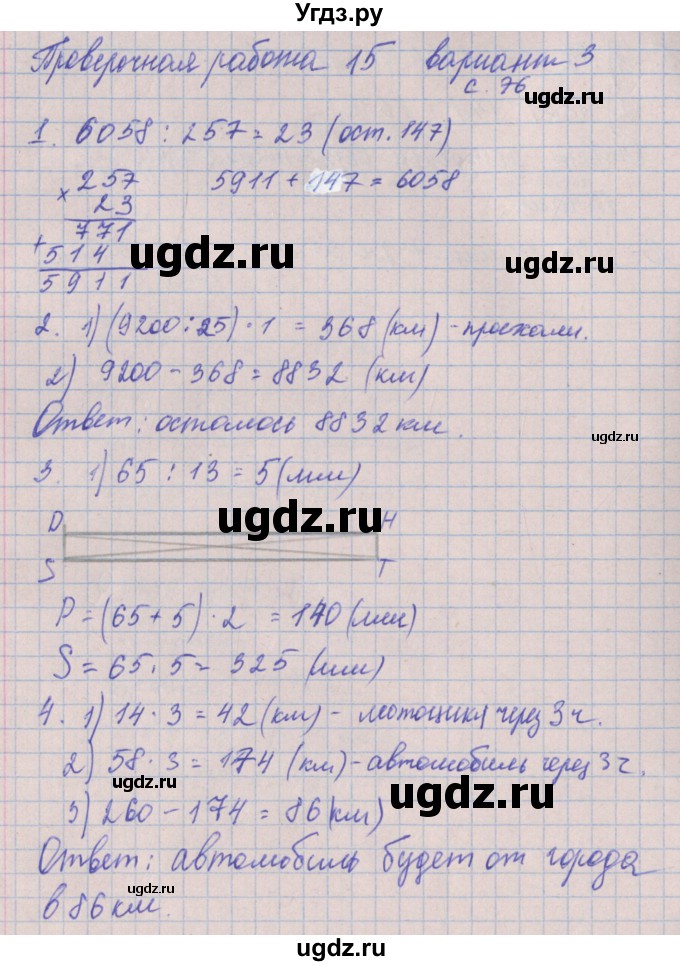 Угдз.ру
Проверочная работа 15 вариант 3
с. 76
ugdz.ru
1. 6058 : 257 = 23 (ост. 147)
× 257 5911 + 147 = 6058
23
771
+ 514
5911
ugdz.ru
ugdz.ru
2. 1) (9200 : 25) · 1 = 368 (км) - проехали.
2) 9200 - 368 = 8832 (км)
Ответ: осталось 8832 км.
ugdz.ru
3. 1) 65 : 13 = 5 (мм)
ugdz.ru
D H
S T
P = (65 + 5) · 2 = 140 (мм)
ugdz.ru
S = 65 · 5 = 325 (мм)
4. 1) 14 · 3 = 42 (км) - мотоцикл через 3 ч.
2) 58 · 3 = 174 (км) - автомобиль через 3 ч.
3) 260 - 174 = 86 (км)
ugdz.ru
Ответ: автомобиль будет от города
ugdz.ru
в 86 км.
ugdz.ru
ugdz.ru